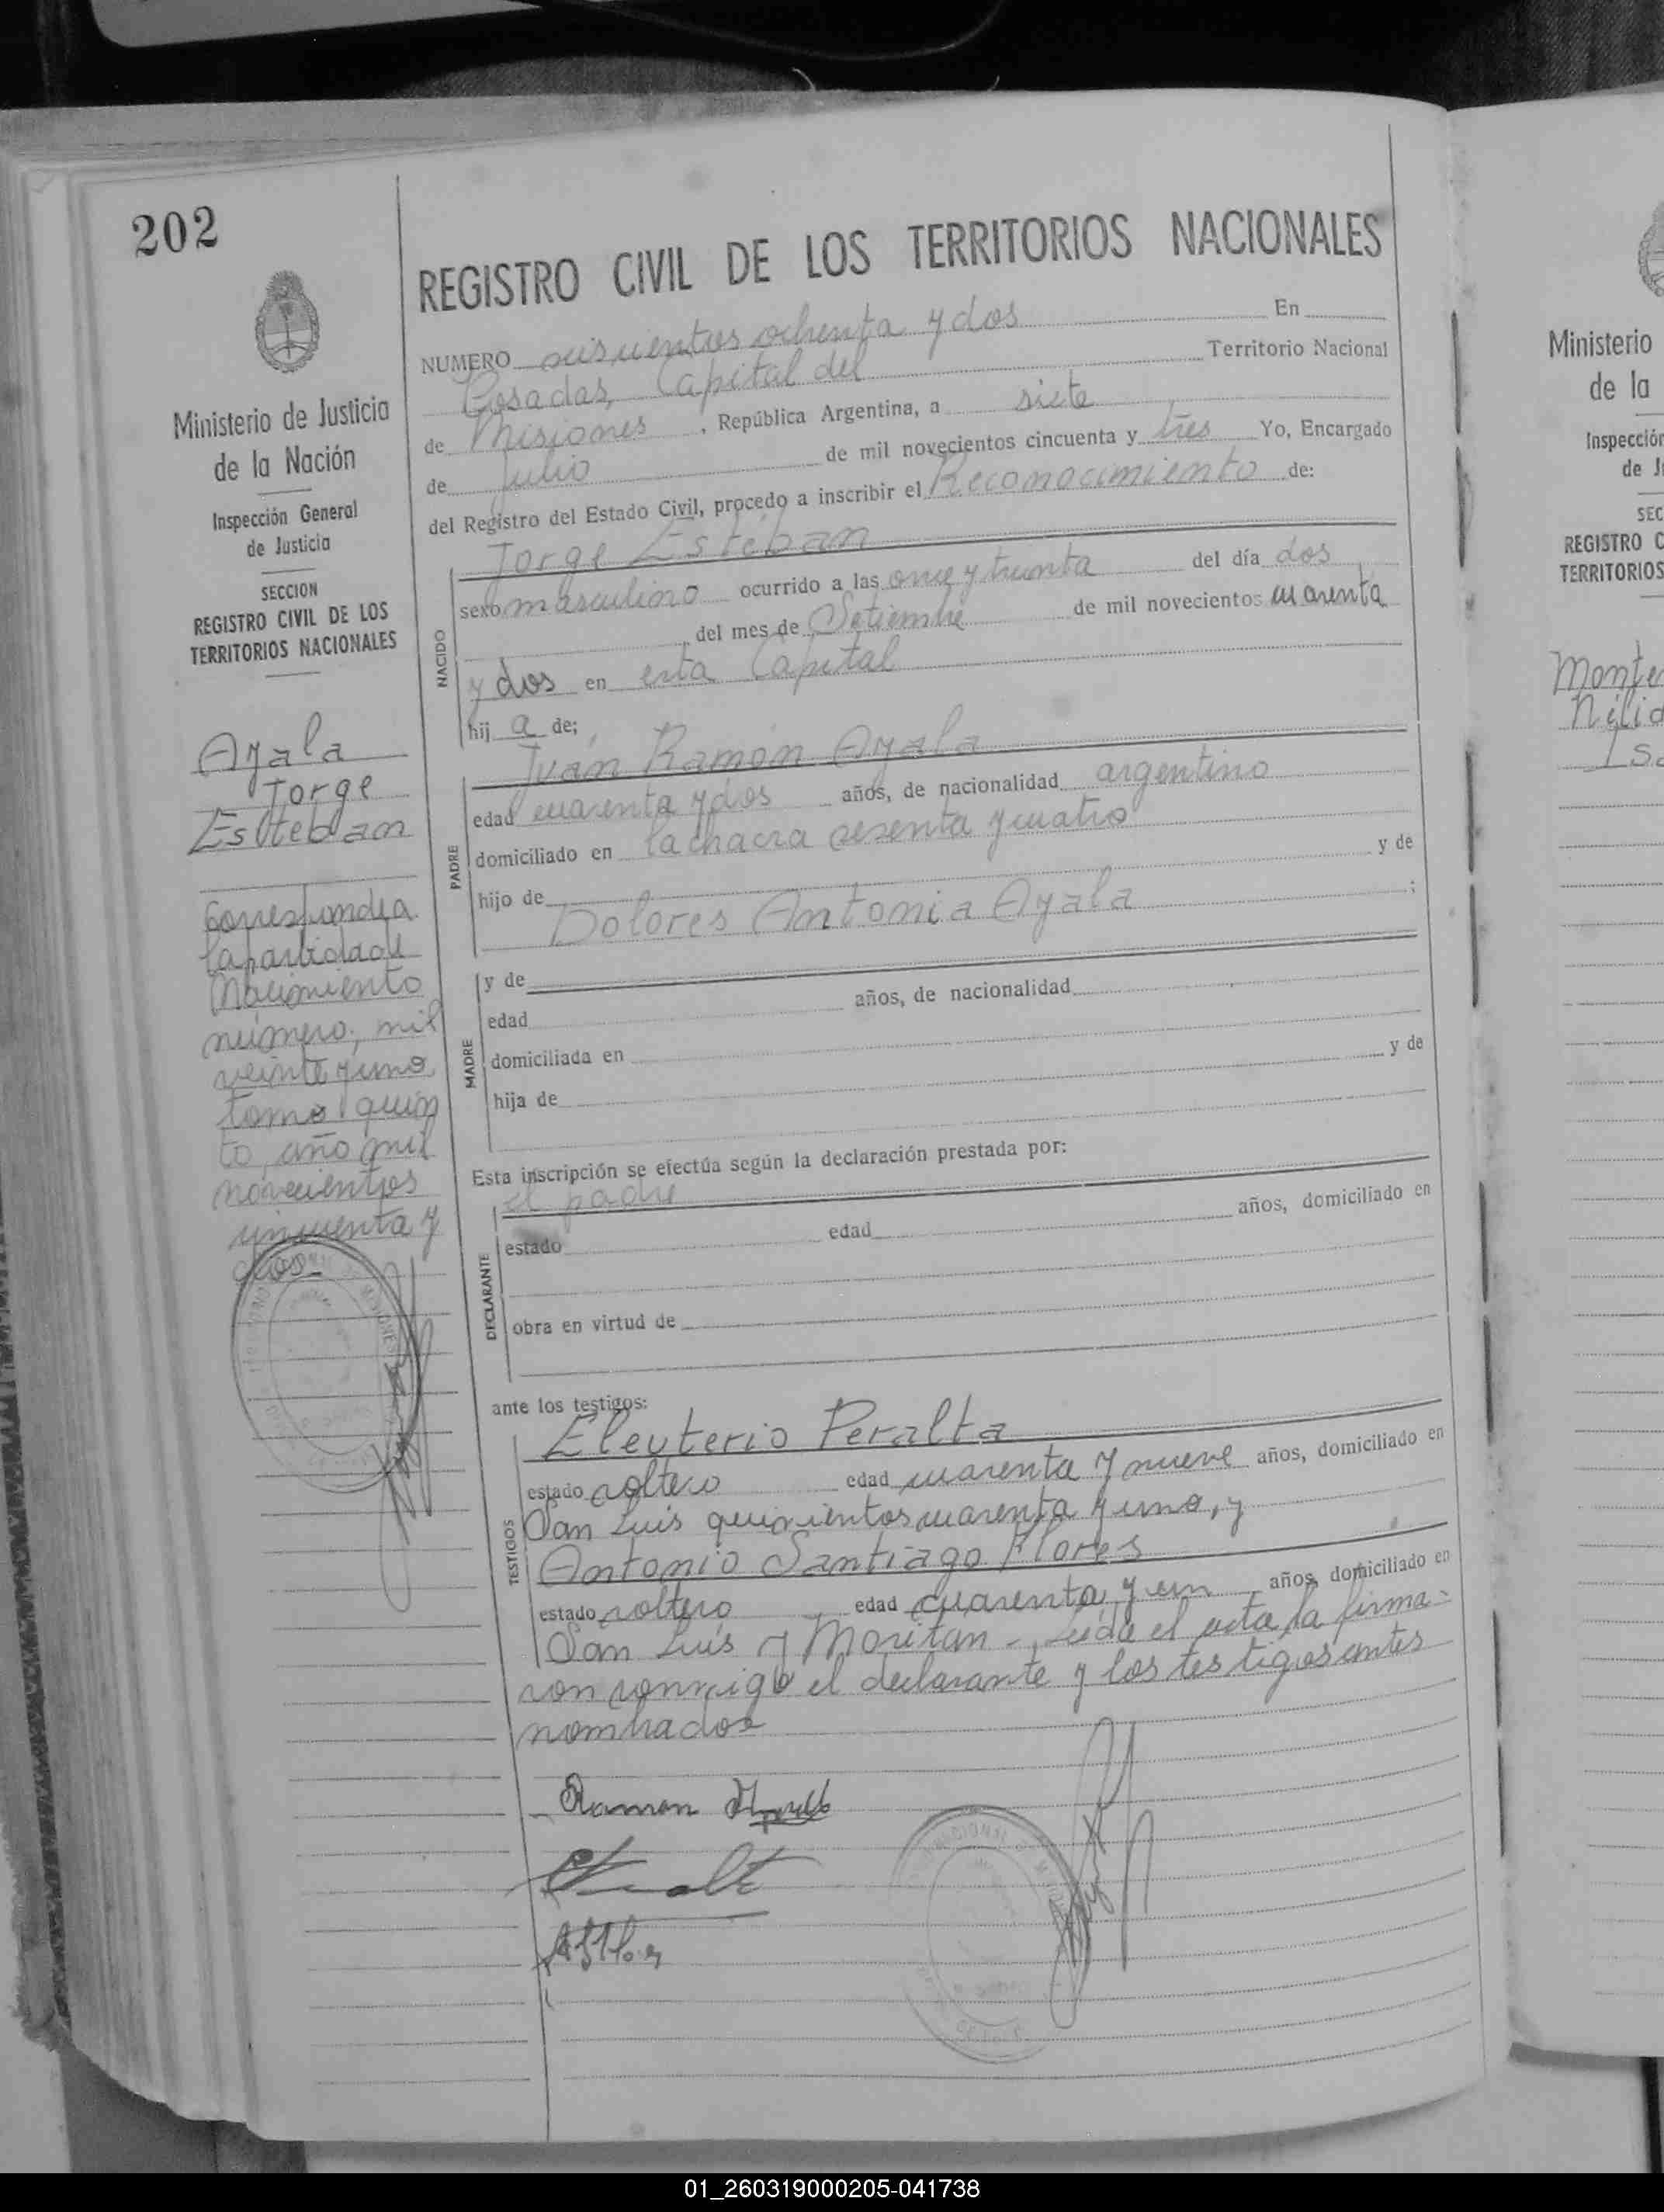 202
Ministerio de Justicia
de la Nación
Inspección General
de Justicia
SECCION
REGISTRO CIVIL DE LOS
TERRITORIOS NACIONALES
Ayala
Jorge
Esteban
Corresponde a
la partida de
Nacimiento
número, mil
veinte y uno
tomo quin
to, año mil
novecientos
cincuenta y
dos-
REGISTRO CIVIL DE LOS TERRITORIOS NACIONALES
NUMERO seiscientos ochenta y dos En
Posadas, Capital del Territorio Nacional
de Misiones, República Argentina, a siete
de Julio de mil novecientos cincuenta y tres Yo, Encargado
del Registro del Estado Civil, procedo a inscribir el Reconocimiento de:
NACIDO
Jorge Esteban
sexo masculino ocurrido a las once y treinta del día dos
del mes de Setiembre de mil novecientos cuarenta
y dos en esta Capital
hij a de;
PADRE
Juan Ramón Ayala
edad cuarenta y dos años, de nacionalidad argentino
domiciliado en la chacra sesenta y cuatro
hijo de y de
Dolores Antonia Ayala ;
MADRE
y de
edad años, de nacionalidad
domiciliada en
hija de y de
Esta inscripción se efectúa según la declaración prestada por:
DECLARANTE
el padre
estado edad años, domiciliado en
obra en virtud de
ante los testigos:
TESTIGOS
Eleuterio Peralta
estado soltero edad cuarenta y nueve años, domiciliado en
San Luis quinientos cuarenta y uno, y
Antonio Santiago Flores
estado soltero edad cuarenta y un años, domiciliado en
San Luis y Moritan - Leída el acta la firma-
ron conmigo el declarante y los testigos antes
nombrados
Ramon
Ministerio
de la
Inspección
de J
SEC
REGISTRO C
TERRITORIOS
Monte
Nélid
Is
01_260319000205-041738